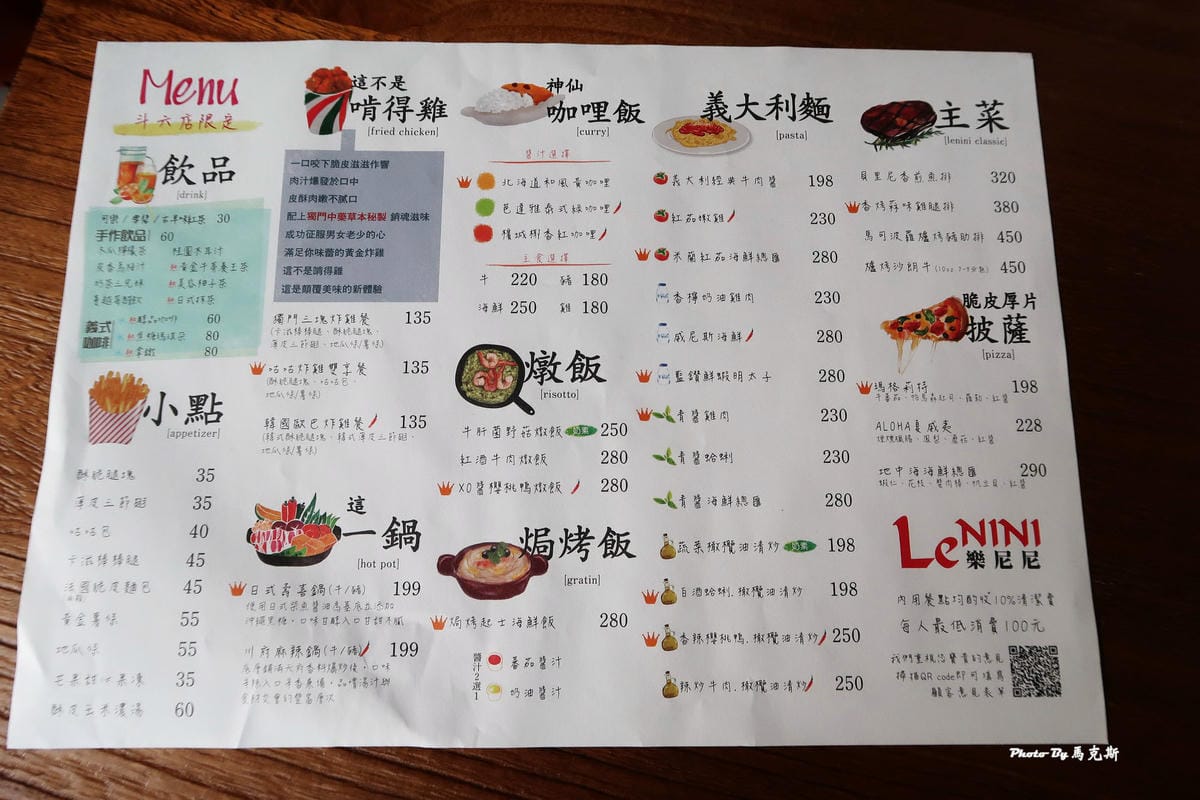 Menu
斗六店限定
飲品
[drink]
可樂/雪碧/古早味紅茶 30
手作飲品 60
冬瓜檸檬茶 桂圓木耳汁
熱黃金牛蒡養生茶
熱日式抹茶
義式咖啡
熱醇品咖啡 60
熱焦糖瑪琪朵 80
熱拿鐵 80
小點
[appetizer]
酥脆腿塊 35
薄皮三節翅 35
咕咕包 40
卡滋棒棒腿 45
法國脆皮麵包 45
黃金薯條 55
地瓜條 55
芒果甜心果凍 35
酥皮玉米濃湯 60
這不是
啃得雞
[fried chicken]
一口咬下脆皮滋滋作響
肉汁爆發於口中
皮酥肉嫩不膩口
配上獨門中藥草本秘製 銷魂滋味
成功征服男女老少的心
滿足你味蕾的黃金炸雞
這不是啃得雞
這是顛覆美味的新體驗
獨門三塊炸雞餐 135
(卡滋棒棒腿、酥脆腿塊、
薄皮三節翅、地瓜條/薯條)
咕咕炸雞雙享餐 135
(酥脆腿塊、咕咕包、
地瓜條/薯條)
韓國歐巴炸雞餐 135
(韓式酥脆腿塊、韓式薄皮三節翅、
地瓜條/薯條)
這
一鍋
[hot pot]
日式壽喜鍋(牛/豬) 199
使用日式柴魚醬油為基底在添加
沖繩黑糖，口味甘醇入口甘甜不膩
川府麻辣鍋(牛/豬) 199
神仙
咖哩飯
[curry]
醬汁選擇
北海道和風黃咖哩
芭達雅泰式綠咖哩
檳城椰香紅咖哩
主食選擇
牛 220 豬 180
海鮮 250 雞 180
燉飯
[risotto]
牛肝菌野菇燉飯 奶素 250
紅酒牛肉燉飯 280
XO醬櫻桃鴨燉飯 280
焗烤飯
[gratin]
焗烤起士海鮮飯 280
醬汁2選1
蕃茄醬汁
奶油醬汁
義大利麵
[pasta]
義大利經典牛肉醬 198
紅茄燉雞 230
米蘭紅茄海鮮總匯 280
香檸奶油雞肉 230
威尼斯海鮮 280
藍鑽鮮蝦明太子 280
青醬雞肉 230
青醬蛤蜊 230
青醬海鮮總匯 280
蔬菜橄欖油清炒 奶素 198
白酒蛤蜊.橄欖油清炒 198
香辣櫻桃鴨.橄欖油清炒 250
辣炒牛肉.橄欖油清炒 250
主菜
[lenini classic]
貝里尼香煎魚排 320
香烤蒜味雞腿排 380
馬可波羅爐烤豬肋排 450
爐烤沙朗牛(10oz 7-9分熟) 450
脆皮厚片
披薩
[pizza]
瑪格莉特 198
ALOHA夏威夷 228
煙燻火腿、鳳梨、蘑菇、紅醬
地中海海鮮總匯 290
LeNINI
樂尼尼
內用餐點均酌收10%清潔費
每人最低消費100元
我們重視您寶貴的意見
掃描QR code即可填寫
顧客意見表單
Photo By 馬克斯